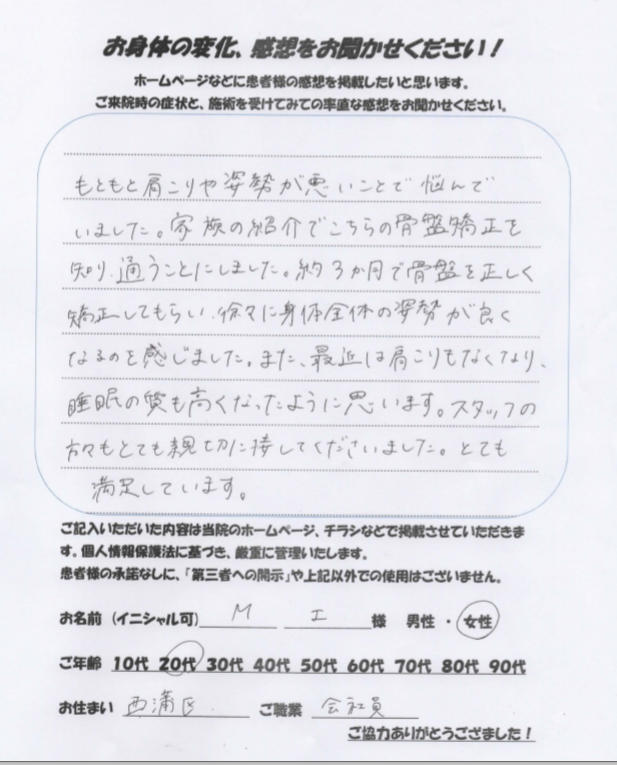 お身体の変化、感想をお聞かせください！
ホームページなどに患者様の感想を掲載したいと思います。
ご来院時の症状と、施術を受けてみての率直な感想をお聞かせください。
もともと肩こりや姿勢が悪いことで悩んで
いました。家族の紹介でこちらの骨盤矯正を
知り、通うことにしました。約3か月で骨盤を正しく
矯正してもらい、徐々に身体全体の姿勢が良く
なるのを感じました。また、最近は肩こりもなくなり、
睡眠の質も高くなったように思います。スタッフの
方々もとても親切に接してくださいました。とても
満足しています。
ご記入いただいた内容は当院のホームページ、チラシなどで掲載させていただきま
す。個人情報保護法に基づき、厳重に管理いたします。
患者様の承諾なしに、「第三者への開示」や上記以外での使用はございません。
お名前（イニシャル可） M I 様 男性・女性
ご年齢 10代 20代 30代 40代 50代 60代 70代 80代 90代
お住まい 西蒲区 ご職業 会社員
ご協力ありがとうござました！